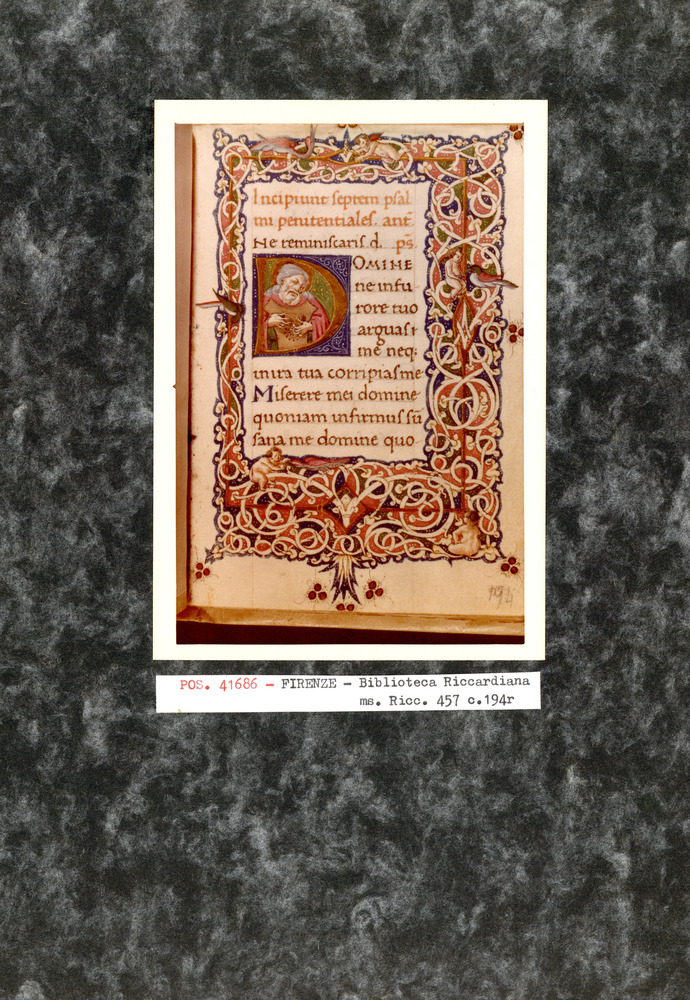 Incipiunt septem psal
mi penitentiales. ant̄
Ne reminiscaris d. ps̄
DOMINE
ne in fu
rore tuo
arguas
me neq;
in ira tua corripias me
Miserere mei domine
quoniam infirmus sū
sana me domine quo
194
POS. 41686 - FIRENZE - Biblioteca Riccardiana
ms. Ricc. 457 c.194r